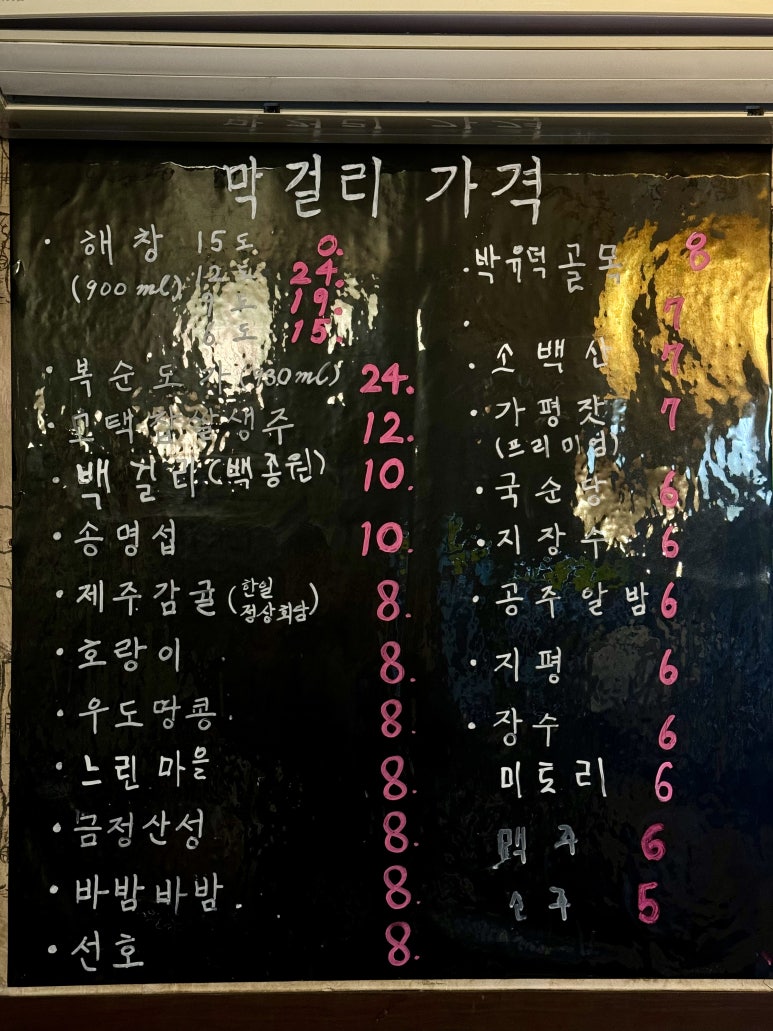 막걸리 가격
· 해창 15도 0.
(900 ml) 12도 24.
9도 19.
6도 15.
· 복순도가 (930ml) 24.
· 고택찹쌀생주 12.
· 백걸리(백종원) 10.
· 송명섭 10.
· 제주감귤(한일 정상회담) 8.
· 호랑이 8.
· 우도땅콩. 8.
· 느린마을 8.
· 금정산성 8.
· 바밤바밤. 8.
· 선호 8.
· 박유덕골목 8
· 7
· 소백산 7
· 가평잣 7
(프리미엄)
· 국순당 6
· 지장수 6
· 공주알밤 6
· 지평 6
· 장수 6
미토리 6
맥주 6
소주 5